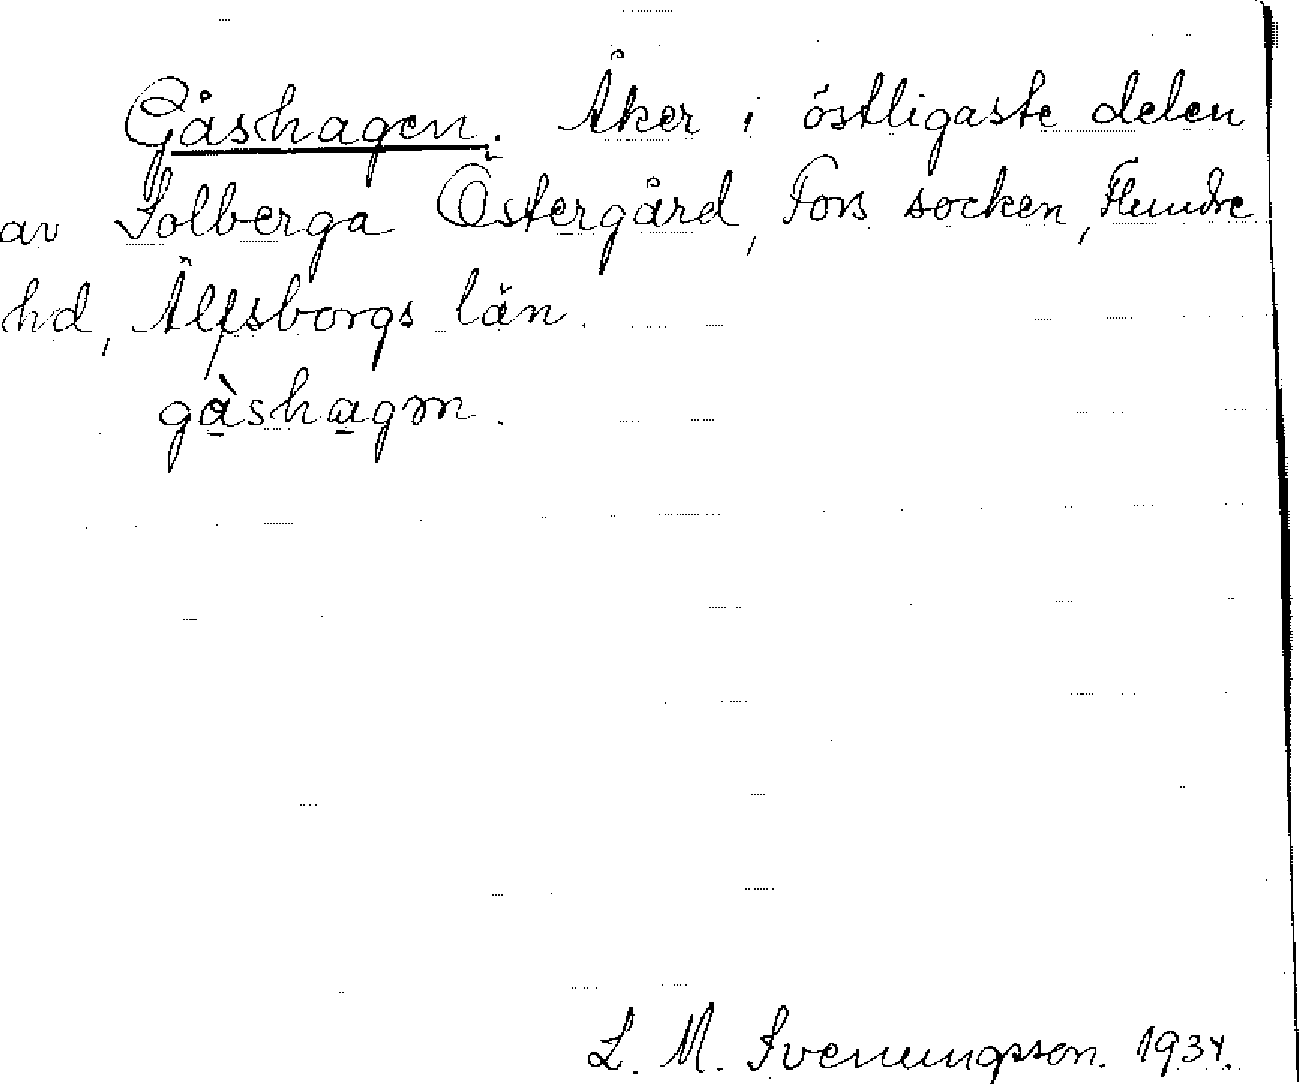 Gåshagen. Åker i östligaste delen
av Solberga Östergård, Fors socken, Flundre
hd, Älfsborgs län.
gàshagm.
L. M. Svenungsson. 1934.